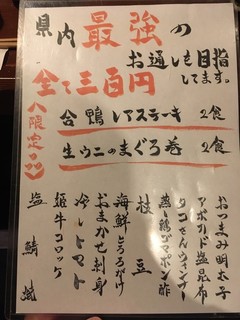 県内最強の
お通しも目指
してます。
全て三百円
八限定
合鴨レアステーキ 2食
生ウニのまぐろ巻 2食
おつまみ明太子
アボカド塩昆布
タコさんウィンナー
蒸し鶏ゴマポン酢
枝豆
海鮮とろろがけ
おまかせ刺身
冷しトマト
姫牛コロッケ
塩鯖